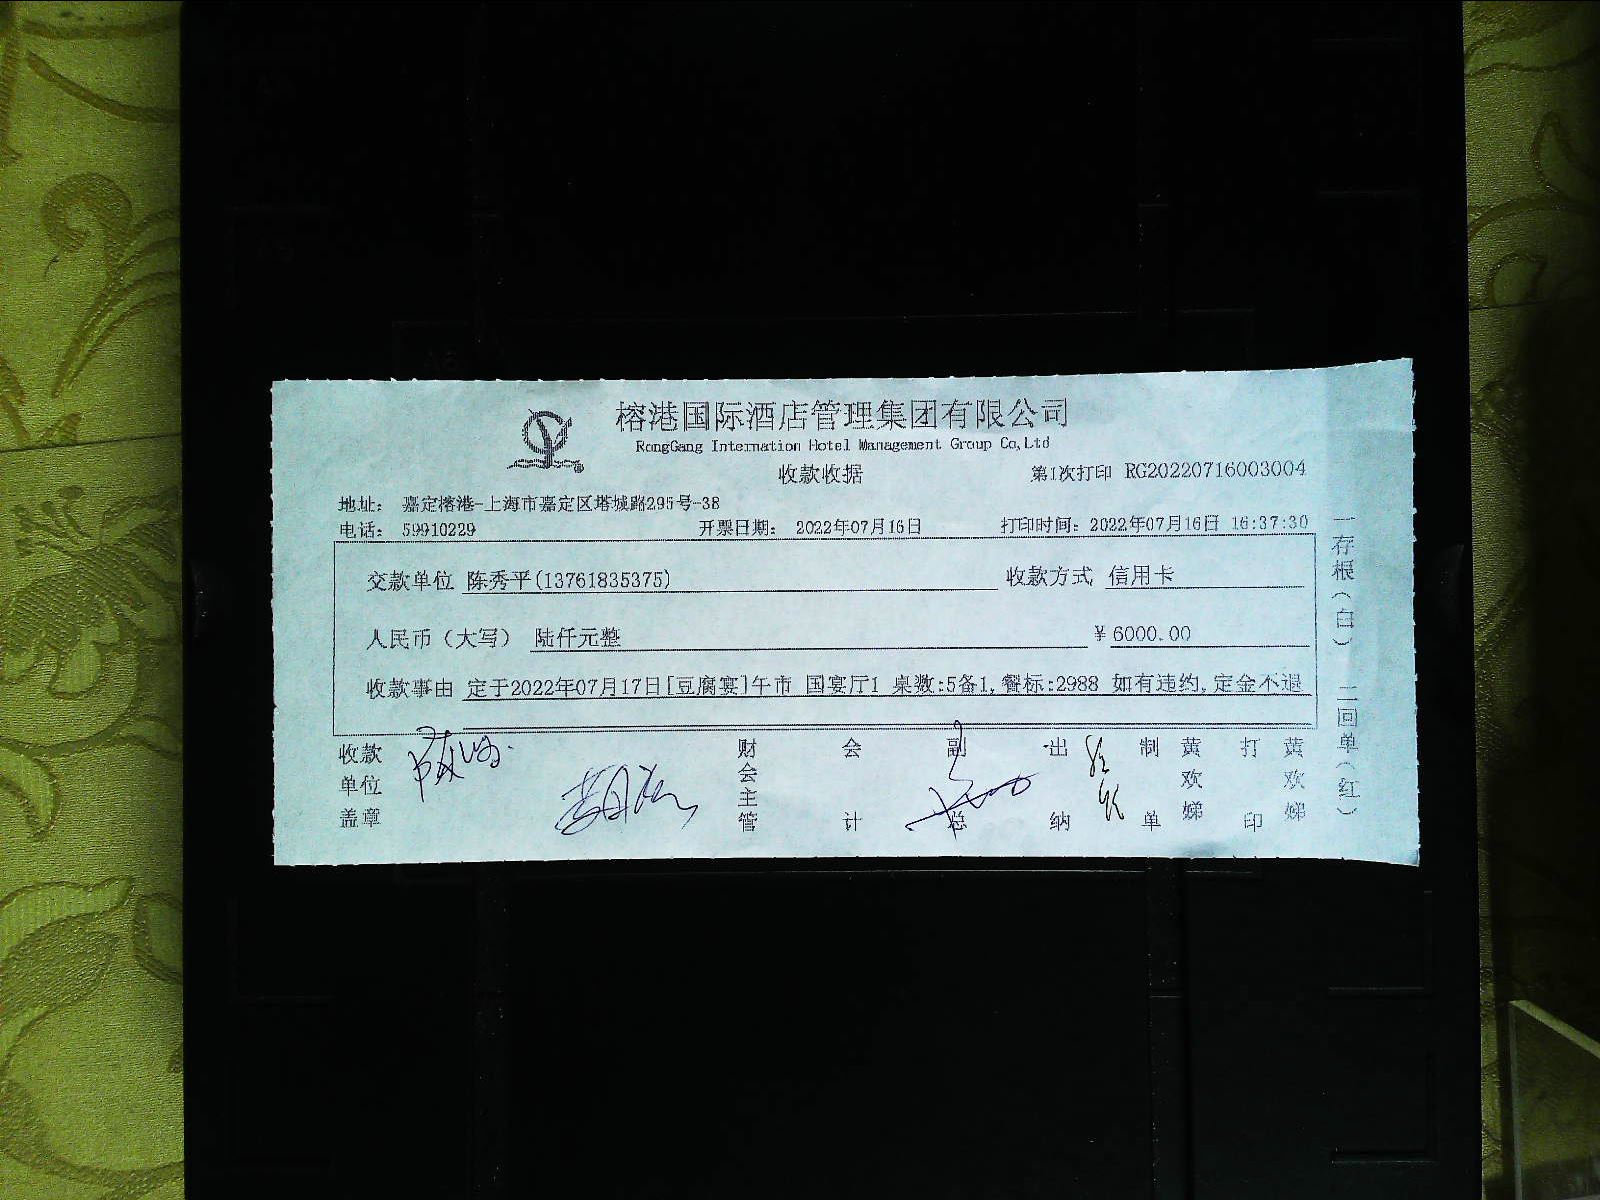 榕港国际酒店管理集团有限公司
RongGang Internation Hotel Management Group Co,Ltd
收款收据
第1次打印 RG20220716003004
地址： 嘉定榕港-上海市嘉定区塔城路295号-38
电话： 59910229 开票日期： 2022年07月16日 打印时间：2022年07月16日 16:37:30
交款单位 陈秀平(13761835375) 收款方式 信用卡
人民币（大写） 陆仟元整 ￥6000.00
收款事由 定于2022年07月17日[豆腐宴]午市 国宴厅1 桌数:5备1,餐标:2988 如有违约,定金不退
收款单位盖章 财会主管 会计 副总 出纳 制单 黄欢娣 打印 黄欢娣
一存根（白） 二回单（红）